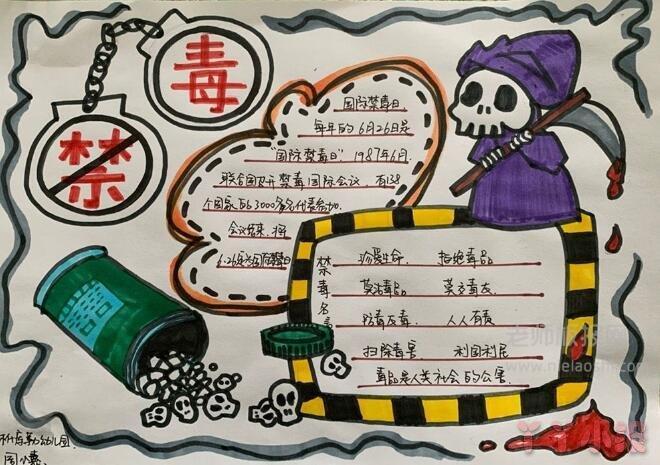 毒
禁
国际禁毒日
每年的6月26日是
"国际禁毒日" 1987年6月.
联合国召开禁毒国际会议 有138
个国家的3000多名代表参加.
会议结束. 将
6.26定为国际禁毒日
禁毒名言
珍爱生命. 拒绝毒品
莫沾毒品 莫交毒友
防毒反毒. 人人有责
扫除毒害 利国利民
毒品是人类社会的公害.
老师
幼儿园
丫丫小报